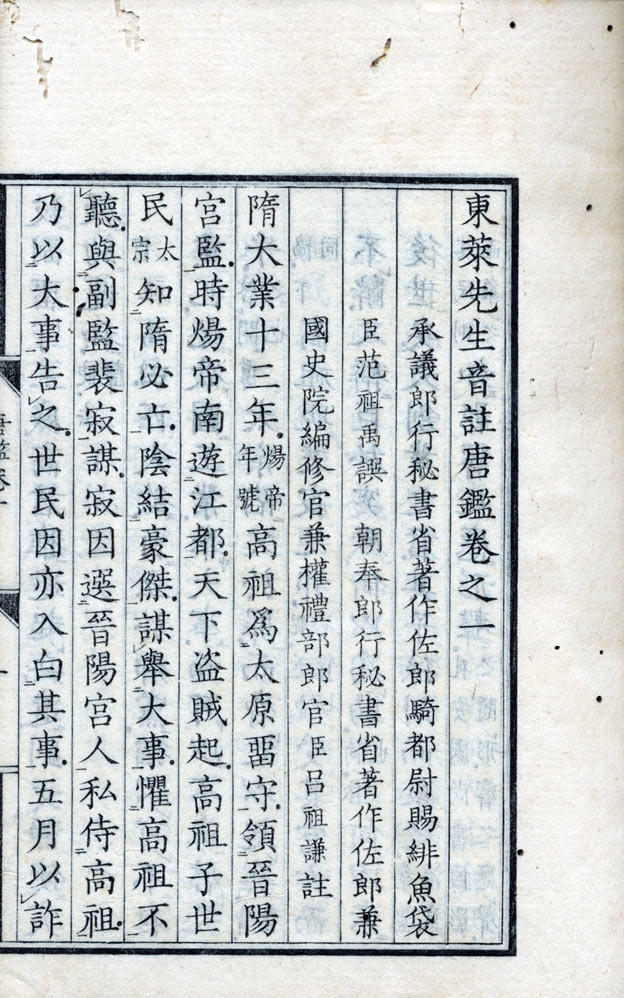 東萊先生音註唐鑑卷之一
承議郎行秘書省著作佐郎騎都尉賜緋魚袋
臣范祖禹譔 朝奉郎行秘書省著作佐郎兼
國史院編修官兼權禮部郎官臣呂祖謙註
隋大業十三年煬帝年號高祖爲太原畱守領晉陽
宮監時煬帝南遊江都天下盗賊起高祖子世
民太宗知隋必亡陰結豪傑謀舉大事懼高祖不
聽與副監裴寂謀寂因選晉陽宮人私侍高祖
乃以大事告之世民因亦入白其事五月以詐